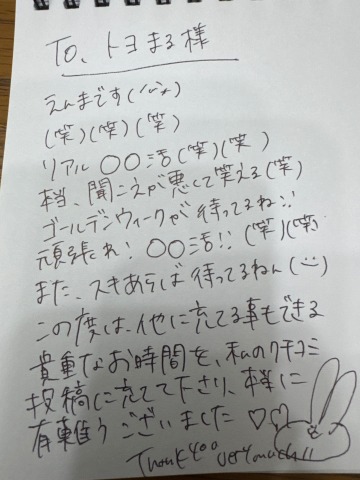 To、トヨまる様
えんまです(^^)
(笑)(笑)(笑)
リアル〇〇活(笑)(笑)
本当、聞こえが悪くて笑える(笑)
ゴールデンウィークが待ってるね!!
頑張れ!〇〇活!!(笑)(笑)
また、スキあらば待ってるねん(:))
この度は、他に充てる事もできる
貴重なお時間を、私のクチコミ
投稿に充てて下さり、本当に
有難うございました♡♡
Thank you very much!!